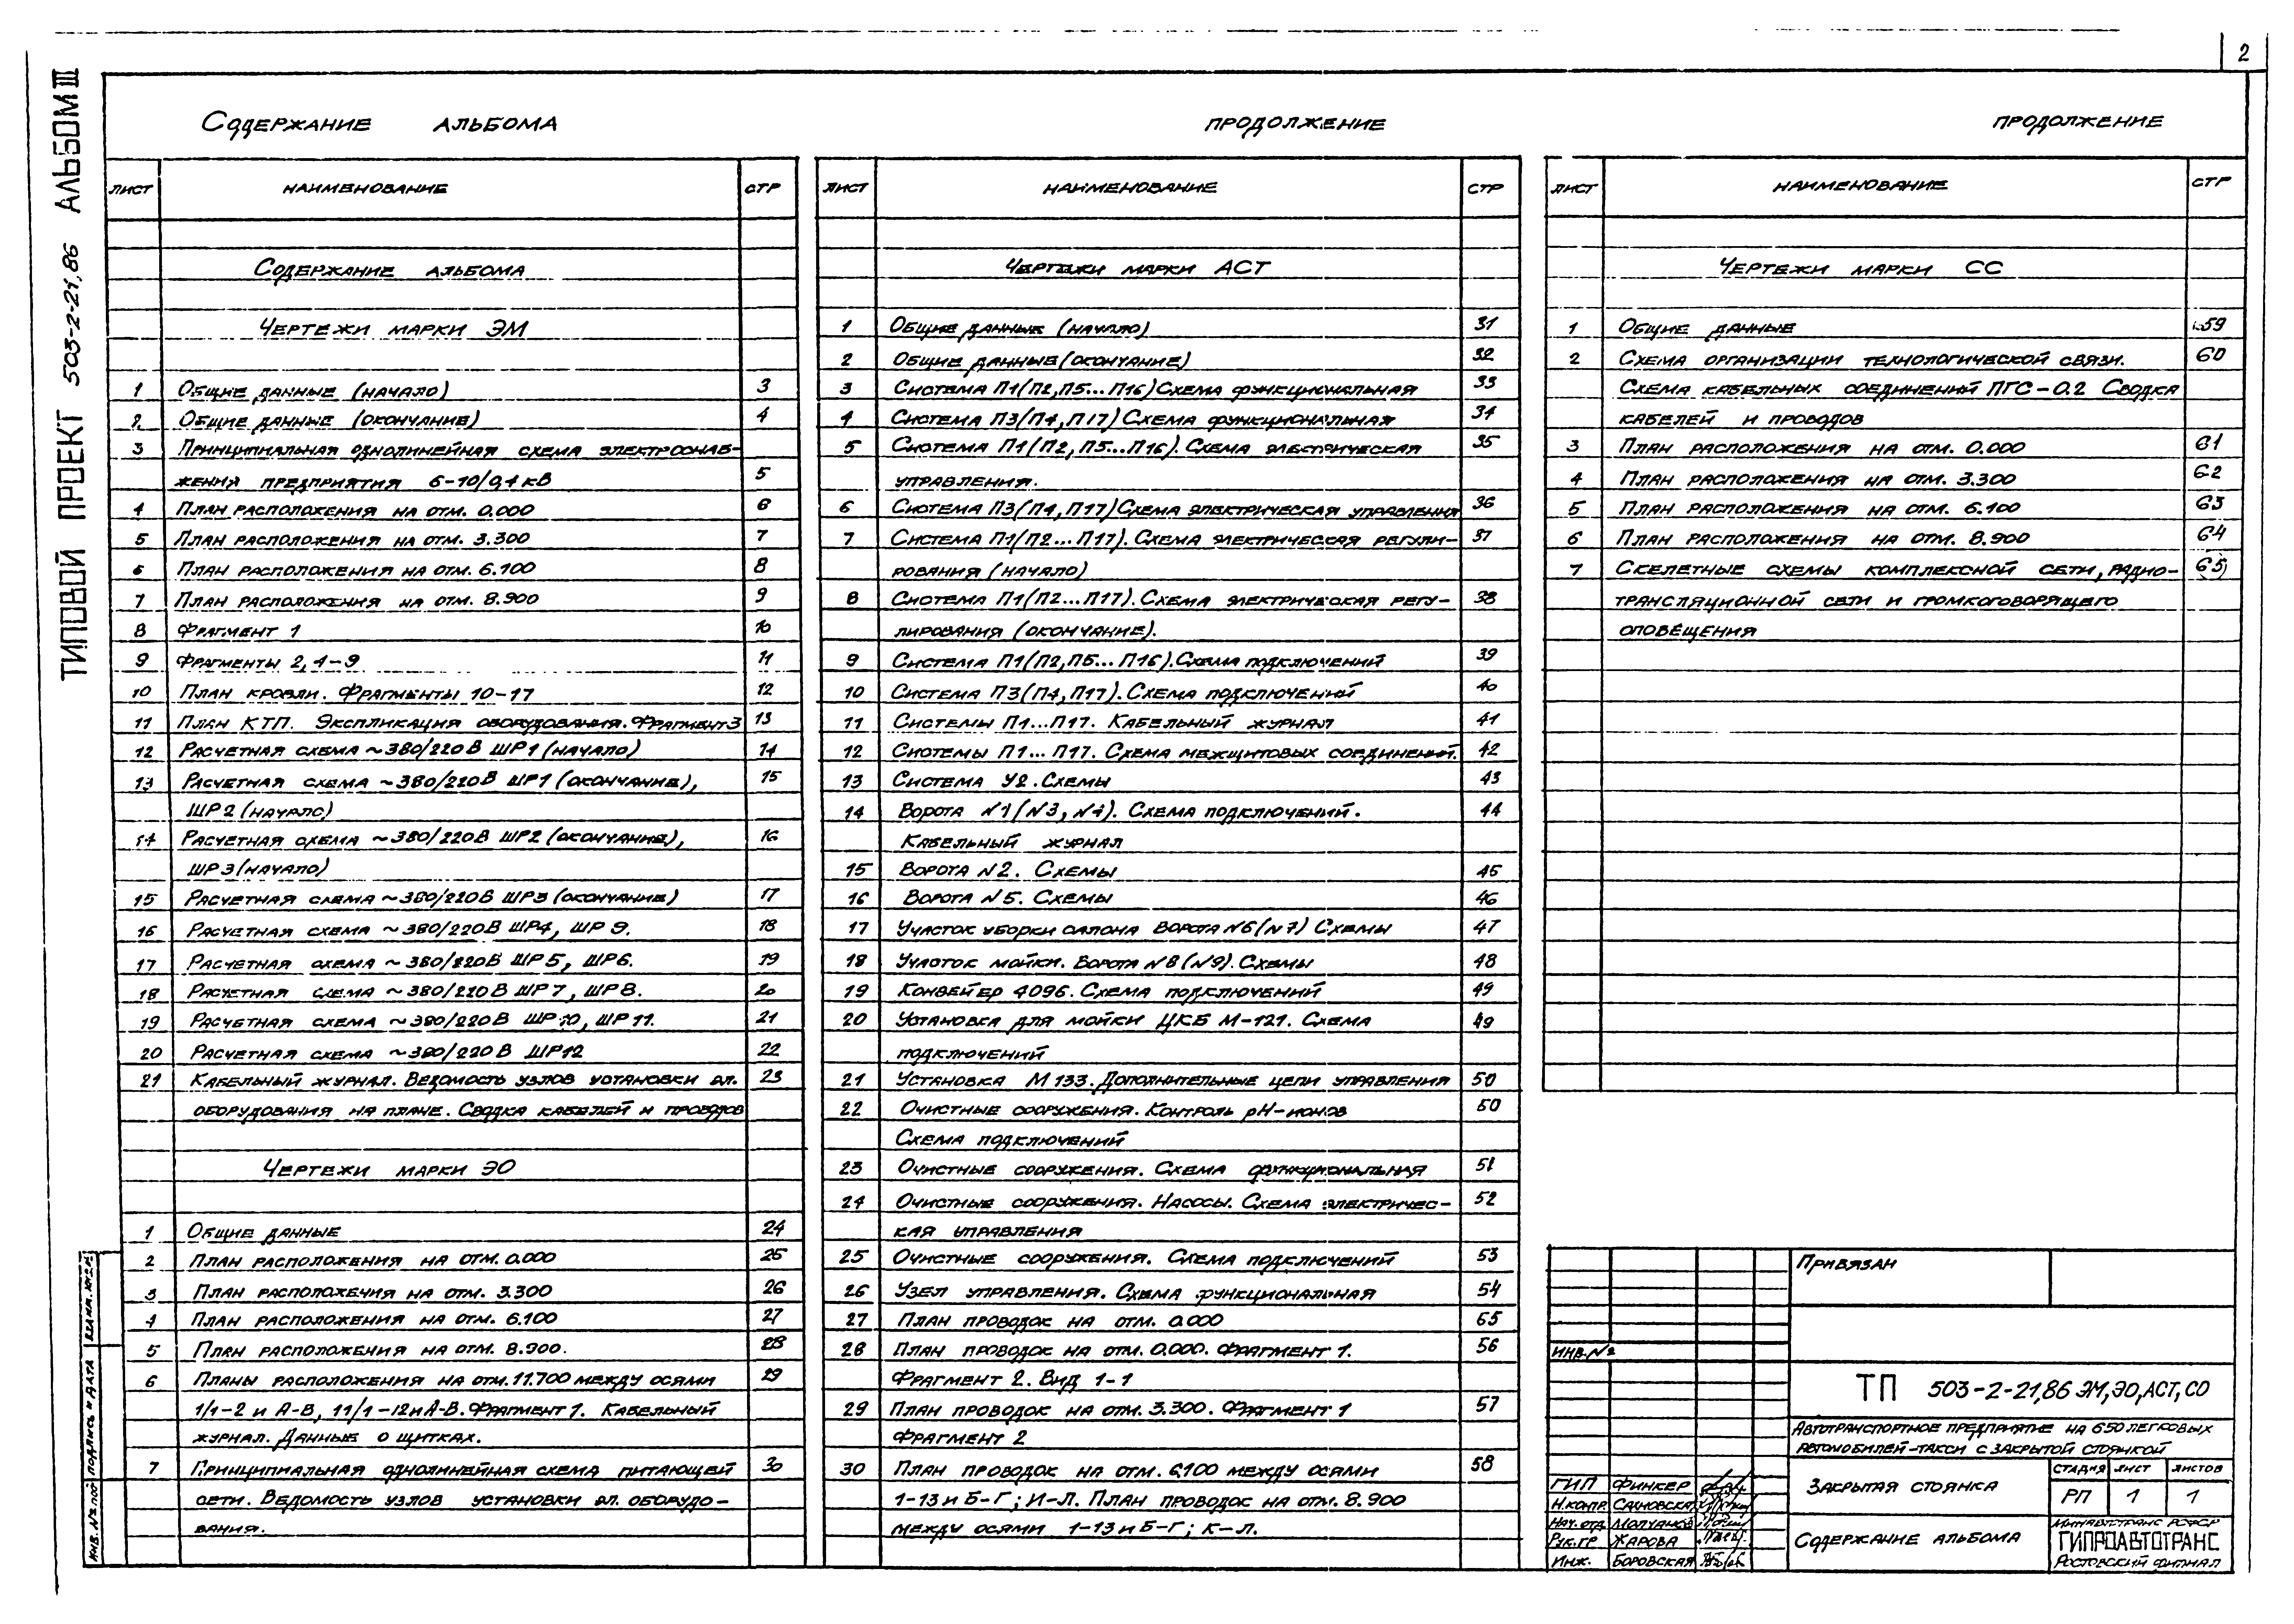 2
ТИПОВОЙ ПРОЕКТ 503-2-21,86 АЛЬБОМ III
СОДЕРЖАНИЕ АЛЬБОМА
ЛИСТ НАИМЕНОВАНИЕ СТР
СОДЕРЖАНИЕ АЛЬБОМА
ЧЕРТЕЖИ МАРКИ ЭМ
1 ОБЩИЕ ДАННЫЕ (НАЧАЛО) 3
2 ОБЩИЕ ДАННЫЕ (ОКОНЧАНИЕ) 4
3 ПРИНЦИПИАЛЬНАЯ ОДНОЛИНЕЙНАЯ СХЕМА ЭЛЕКТРОСНАБ-
ЖЕНИЯ ПРЕДПРИЯТИЯ 6-10/0,4 кВ 5
4 ПЛАН РАСПОЛОЖЕНИЯ НА ОТМ. 0.000 6
5 ПЛАН РАСПОЛОЖЕНИЯ НА ОТМ. 3.300 7
6 ПЛАН РАСПОЛОЖЕНИЯ НА ОТМ. 6.100 8
7 ПЛАН РАСПОЛОЖЕНИЯ НА ОТМ. 8.900 9
8 ФРАГМЕНТ 1 10
9 ФРАГМЕНТЫ 2, 4-9 11
10 ПЛАН КРОВЛИ. ФРАГМЕНТЫ 10-17 12
11 ПЛАН КТП. ЭКСПЛИКАЦИЯ ОБОРУДОВАНИЯ. ФРАГМЕНТ 3 13
12 РАСЧЕТНАЯ СХЕМА ~380/220В ШР1 (НАЧАЛО) 14
13 РАСЧЕТНАЯ СХЕМА ~380/220В ШР1 (ОКОНЧАНИЕ), 15
ШР2 (НАЧАЛО)
14 РАСЧЕТНАЯ СХЕМА ~380/220В ШР2 (ОКОНЧАНИЕ), 16
ШР3 (НАЧАЛО)
15 РАСЧЕТНАЯ СХЕМА ~380/220В ШР3 (ОКОНЧАНИЕ) 17
16 РАСЧЕТНАЯ СХЕМА ~380/220В ШР4, ШР9. 18
17 РАСЧЕТНАЯ СХЕМА ~380/220В ШР5, ШР6. 19
18 РАСЧЕТНАЯ СХЕМА ~380/220В ШР7, ШР8. 20
19 РАСЧЕТНАЯ СХЕМА ~380/220В ШР10, ШР11. 21
20 РАСЧЕТНАЯ СХЕМА ~380/220В ШР12 22
21 КАБЕЛЬНЫЙ ЖУРНАЛ. ВЕДОМОСТЬ УЗЛОВ УСТАНОВКИ ЭЛ. 23
ОБОРУДОВАНИЯ НА ПЛАНЕ. СВОДКА КАБЕЛЕЙ И ПРОВОДОВ
ЧЕРТЕЖИ МАРКИ ЭО
1 ОБЩИЕ ДАННЫЕ 24
2 ПЛАН РАСПОЛОЖЕНИЯ НА ОТМ. 0.000 25
3 ПЛАН РАСПОЛОЖЕНИЯ НА ОТМ. 3.300 26
4 ПЛАН РАСПОЛОЖЕНИЯ НА ОТМ. 6.100 27
5 ПЛАН РАСПОЛОЖЕНИЯ НА ОТМ. 8.900. 28
6 ПЛАНЫ РАСПОЛОЖЕНИЯ НА ОТМ. 11.700 МЕЖДУ ОСЯМИ 29
1/1-2 И А-В, 11/1-12 И А-В. ФРАГМЕНТ 1. КАБЕЛЬНЫЙ
ЖУРНАЛ. ДАННЫЕ О ЩИТКАХ.
7 ПРИНЦИПИАЛЬНАЯ ОДНОЛИНЕЙНАЯ СХЕМА ПИТАЮЩЕЙ 30
СЕТИ. ВЕДОМОСТЬ УЗЛОВ УСТАНОВКИ ЭЛ. ОБОРУДО-
ВАНИЯ.
ПРОДОЛЖЕНИЕ
ЛИСТ НАИМЕНОВАНИЕ СТР
ЧЕРТЕЖИ МАРКИ АСТ
1 ОБЩИЕ ДАННЫЕ (НАЧАЛО) 31
2 ОБЩИЕ ДАННЫЕ (ОКОНЧАНИЕ) 32
3 СИСТЕМА П1(П2,П5...П16) СХЕМА ФУНКЦИОНАЛЬНАЯ 33
4 СИСТЕМА П3(П4,П17) СХЕМА ФУНКЦИОНАЛЬНАЯ 34
5 СИСТЕМА П1(П2,П5...П16). СХЕМА ЭЛЕКТРИЧЕСКАЯ 35
УПРАВЛЕНИЯ.
6 СИСТЕМА П3(П4,П17) СХЕМА ЭЛЕКТРИЧЕСКАЯ УПРАВЛЕНИЯ 36
7 СИСТЕМА П1(П2...П17). СХЕМА ЭЛЕКТРИЧЕСКАЯ РЕГУЛИ- 37
РОВАНИЯ (НАЧАЛО)
8 СИСТЕМА П1(П2...П17). СХЕМА ЭЛЕКТРИЧЕСКАЯ РЕГУ- 38
ЛИРОВАНИЯ (ОКОНЧАНИЕ).
9 СИСТЕМА П1(П2,П5...П16). СХЕМА ПОДКЛЮЧЕНИЙ 39
10 СИСТЕМА П3(П4,П17). СХЕМА ПОДКЛЮЧЕНИЙ 40
11 СИСТЕМЫ П1...П17. КАБЕЛЬНЫЙ ЖУРНАЛ 41
12 СИСТЕМЫ П1...П17. СХЕМА МЕЖЩИТОВЫХ СОЕДИНЕНИЙ. 42
13 СИСТЕМА У2. СХЕМЫ 43
14 ВОРОТА N1 (N3, N4). СХЕМА ПОДКЛЮЧЕНИЙ. 44
КАБЕЛЬНЫЙ ЖУРНАЛ
15 ВОРОТА N2. СХЕМЫ 45
16 ВОРОТА N5. СХЕМЫ 46
17 УЧАСТОК УБОРКИ САЛОНА ВОРОТА N6 (N7) СХЕМЫ 47
18 УЧАСТОК МОЙКИ. ВОРОТА N8 (N9). СХЕМЫ 48
19 КОНВЕЙЕР 4096. СХЕМА ПОДКЛЮЧЕНИЙ 49
20 УСТАНОВКА ДЛЯ МОЙКИ ЦКБ М-121. СХЕМА 49
ПОДКЛЮЧЕНИЙ
21 УСТАНОВКА М133. ДОПОЛНИТЕЛЬНЫЕ ЦЕПИ УПРАВЛЕНИЯ 50
22 ОЧИСТНЫЕ СООРУЖЕНИЯ. КОНТРОЛЬ pH-ИОНОВ 50
СХЕМА ПОДКЛЮЧЕНИЙ
23 ОЧИСТНЫЕ СООРУЖЕНИЯ. СХЕМА ФУНКЦИОНАЛЬНАЯ 51
24 ОЧИСТНЫЕ СООРУЖЕНИЯ. НАСОСЫ. СХЕМА ЭЛЕКТРИЧЕС- 52
КАЯ УПРАВЛЕНИЯ
25 ОЧИСТНЫЕ СООРУЖЕНИЯ. СХЕМА ПОДКЛЮЧЕНИЙ 53
26 УЗЕЛ УПРАВЛЕНИЯ. СХЕМА ФУНКЦИОНАЛЬНАЯ 54
27 ПЛАН ПРОВОДОК НА ОТМ. 0.000 65
28 ПЛАН ПРОВОДОК НА ОТМ. 0.000. ФРАГМЕНТ 1. 56
ФРАГМЕНТ 2. ВИД 1-1
29 ПЛАН ПРОВОДОК НА ОТМ. 3.300. ФРАГМЕНТ 1 57
ФРАГМЕНТ 2
30 ПЛАН ПРОВОДОК НА ОТМ. 6.100 МЕЖДУ ОСЯМИ 58
1-13 И Б-Г; И-Л. ПЛАН ПРОВОДОК НА ОТМ. 8.900
МЕЖДУ ОСЯМИ 1-13 И Б-Г; К-Л.
ПРОДОЛЖЕНИЕ
ЛИСТ НАИМЕНОВАНИЕ СТР
ЧЕРТЕЖИ МАРКИ СС
1 ОБЩИЕ ДАННЫЕ 59
2 СХЕМА ОРГАНИЗАЦИИ ТЕХНОЛОГИЧЕСКОЙ СВЯЗИ. 60
СХЕМА КАБЕЛЬНЫХ СОЕДИНЕНИЙ ПГС-0.2 СВОДКА
КАБЕЛЕЙ И ПРОВОДОВ
3 ПЛАН РАСПОЛОЖЕНИЯ НА ОТМ. 0.000 61
4 ПЛАН РАСПОЛОЖЕНИЯ НА ОТМ. 3.300 62
5 ПЛАН РАСПОЛОЖЕНИЯ НА ОТМ. 6.100 63
6 ПЛАН РАСПОЛОЖЕНИЯ НА ОТМ. 8.900 64
7 СКЕЛЕТНЫЕ СХЕМЫ КОМПЛЕКСНОЙ СЕТИ, РАДИО- 65
ТРАНСЛЯЦИОННОЙ СЕТИ И ГРОМКОГОВОРЯЩЕГО
ОПОВЕЩЕНИЯ
ПРИВЯЗАН
ИНВ.№
ТП 503-2-21,86 ЭМ,ЭО,АСТ,СО
АВТОТРАНСПОРТНОЕ ПРЕДПРИЯТИЕ НА 650 ЛЕГКОВЫХ
АВТОМОБИЛЕЙ-ТАКСИ С ЗАКРЫТОЙ СТОЯНКОЙ
ГИП ФИНКЕР
Н.КОНТР. САХНОВСКАЯ
НАЧ.ОТД МОЛЧАНОВ
РУК.ГР ЖАРОВА
ИНЖ. БОРОВСКАЯ
ЗАКРЫТАЯ СТОЯНКА
СТАДИЯ ЛИСТ ЛИСТОВ
РП 1 1
СОДЕРЖАНИЕ АЛЬБОМА
МИНАВТОТРАНС РСФСР
ГИПРОАВТОТРАНС
РОСТОВСКИЙ ФИЛИАЛ
ИНВ.№ ПОДЛ ПОДПИСЬ И ДАТА ВЗАМ.ИНВ.№